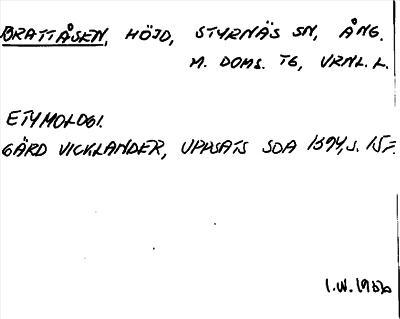 BRATTÅSEN, HÖJD, STYRNÄS SN, ÅNG.
M. DOMS. TG, VRNL. L.
ETYMOLOGI.
GÄRD VICKLANDER, UPPSATS SOA 1394, S. 15F.
I.W. 1966